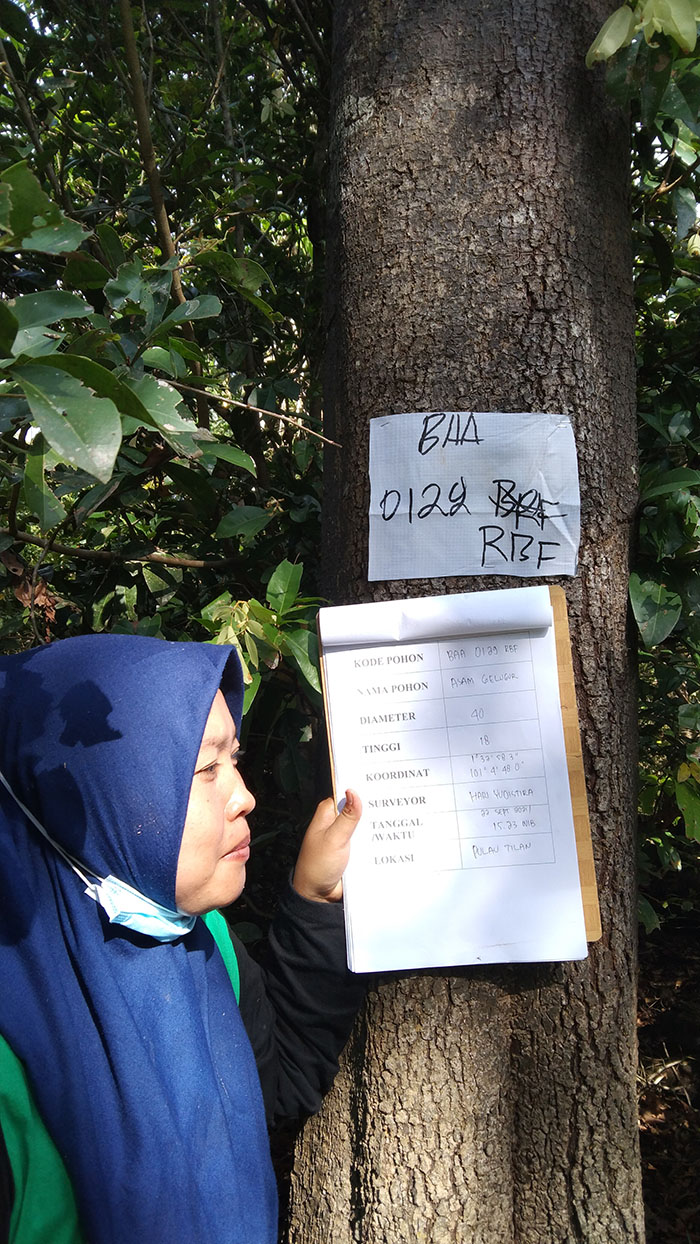 BAA
0129
RBF
KODE POHON BAA 0129 RBF
NAMA POHON ASAM GELUGUR
DIAMETER 40
TINGGI 18
KOORDINAT 1° 32' 58.3"
101° 4' 48.0"
SURVEYOR HARI YUDISTIRA
TANGGAL 22 SEPT 2021
/WAKTU 15.23 WIB
LOKASI PULAU TILAN